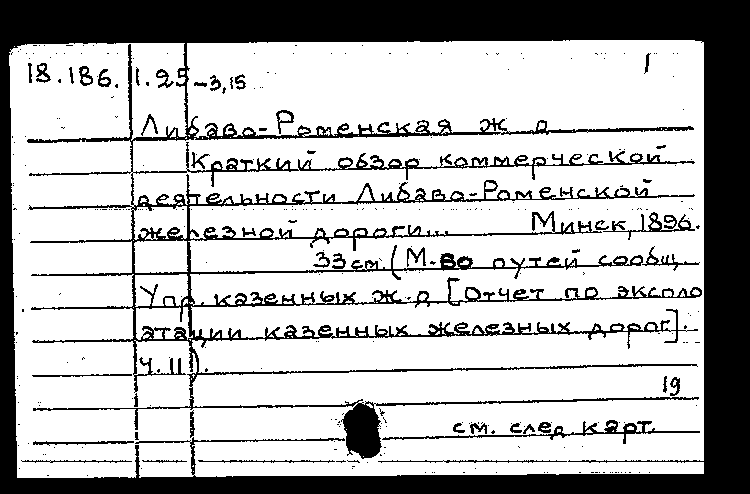 18.186. 11.25-3,15 1
Либаво-Роменская ж д
Краткий обзор коммерческой
деятельности Либаво-Роменской
железной дороги... Минск, 1896.
33 см. (М-во путей сообщ.
Упр. казенных ж.д [Отчет по экспло
атации казенных железных дорог].
Ч. II).
19
см. след карт.